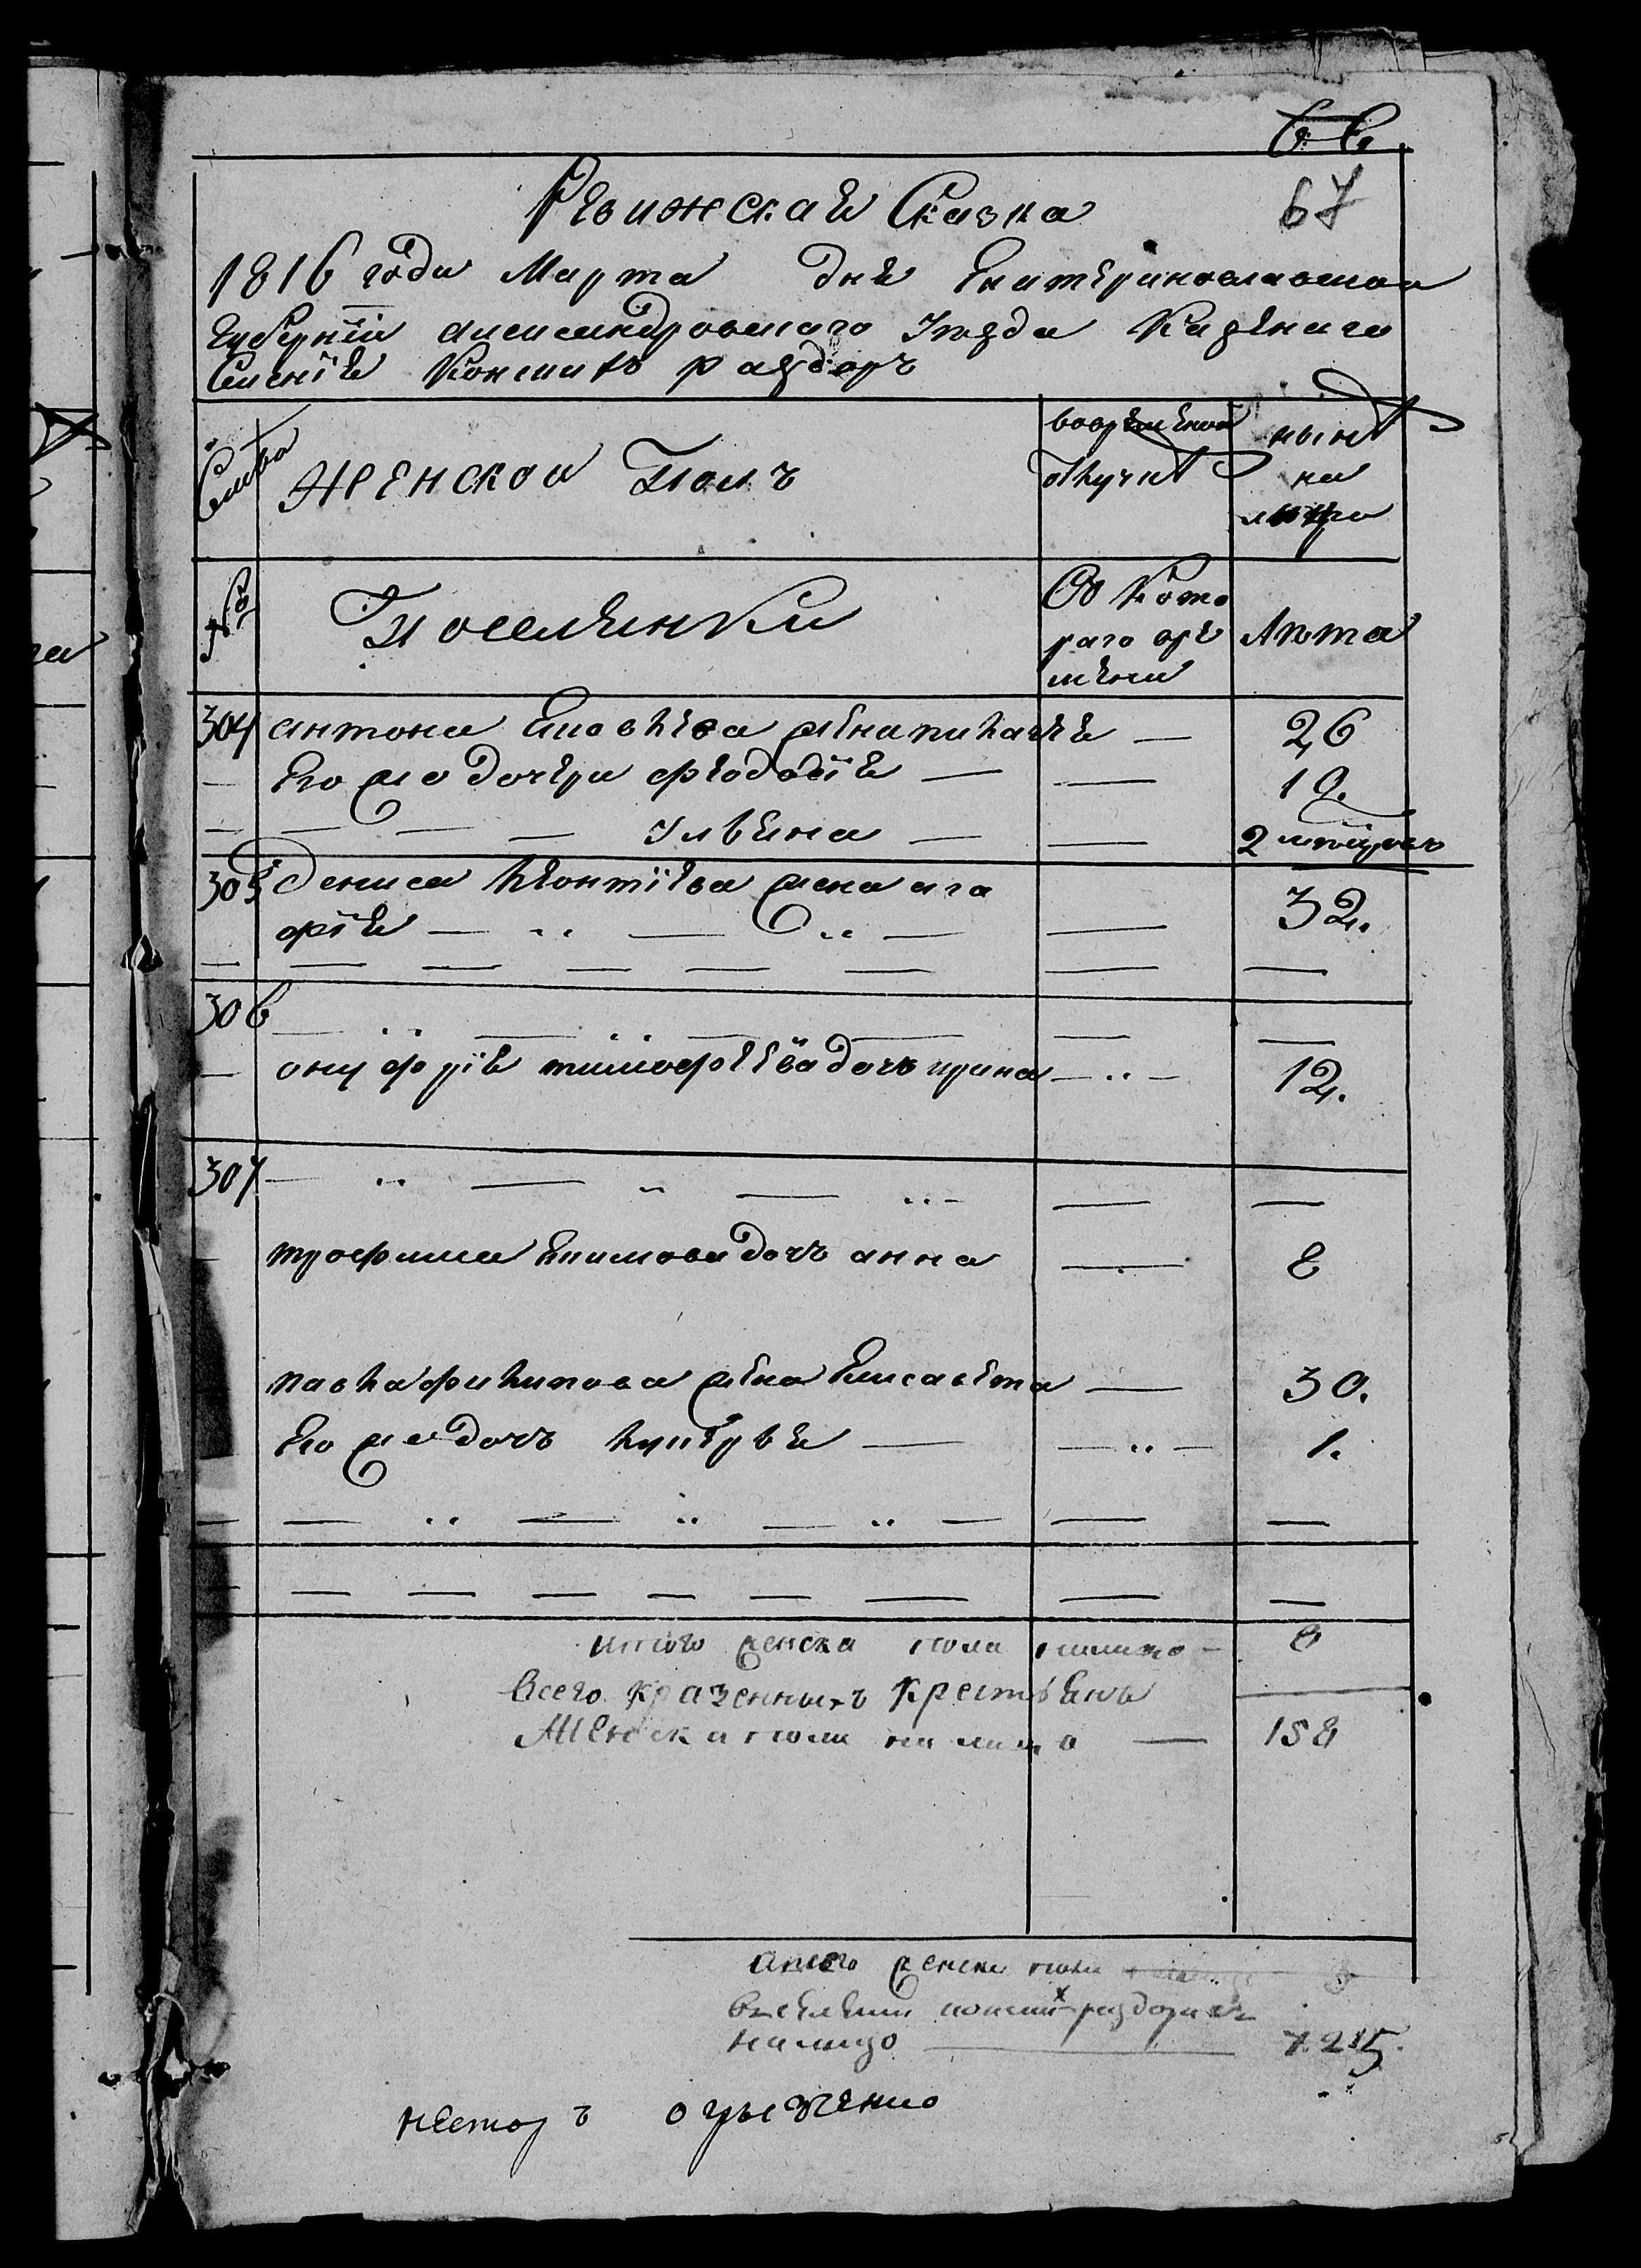 67
Ревижская Сказка
1816 года Марта дня Екатеринославской
Губернїи Александровскаго Уезда Казенаго
Селенїя Конскихъ раздоръ
Семьи
Женской Полъ
вовременой отлучкѣ
нынѣ на лицо
№
Поселянки
Съ Котораго времени
Лѣта
304 антона Яковлева жена пилагея — 26
— Его же дочери феодосїя — — 10.
— — — — Ульяна — — 2 месецовъ
305 Дениса Леонтїева жена ага
фїя — — — — 32.
306
— онуфрїя тимофеева дочь ирина — 12.
307
трофима Екимова дочь анна — 8
павла филипова жена Елисавета — 30.
Его же дочь лукерья — — 1.
итого женска пола налицо — 8
Всего казенныхъ Крестьянъ
Женска пола на лицо — 158
Всего женска пола
вселении конскихъ раздорахъ
налицо — 7215.